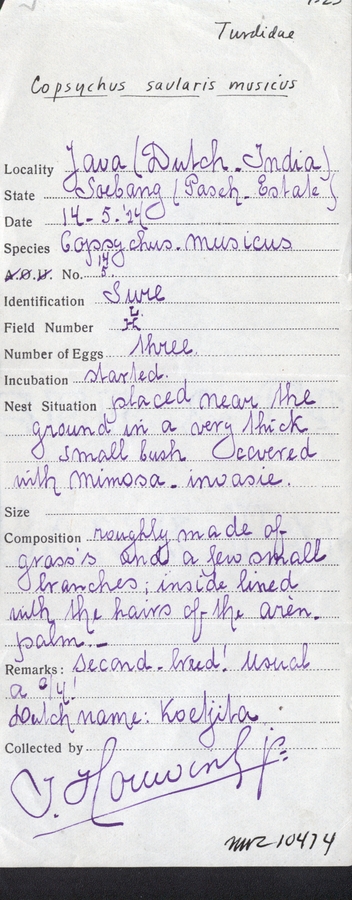 Turdidae
Copsychus saularis musicus
Locality Java (Dutch-India)
State Soebang (Pasch-Estate)
Date 14-5.'24
Species Copsychus-musicus
A.O.U. No. 14/5.
Identification Sure
Field Number
Number of Eggs three.
Incubation started.
Nest Situation placed near the
ground in a very thick
small bush covered
with mimosa-invasie.
Size
Composition roughly made of
grass's and a few small
branches; inside lined
with the hairs of the arèn-
palm.-
Remarks: Second-breed! Usual
a
Dutch name: Koetjita.
Collected by
MVZ 10474